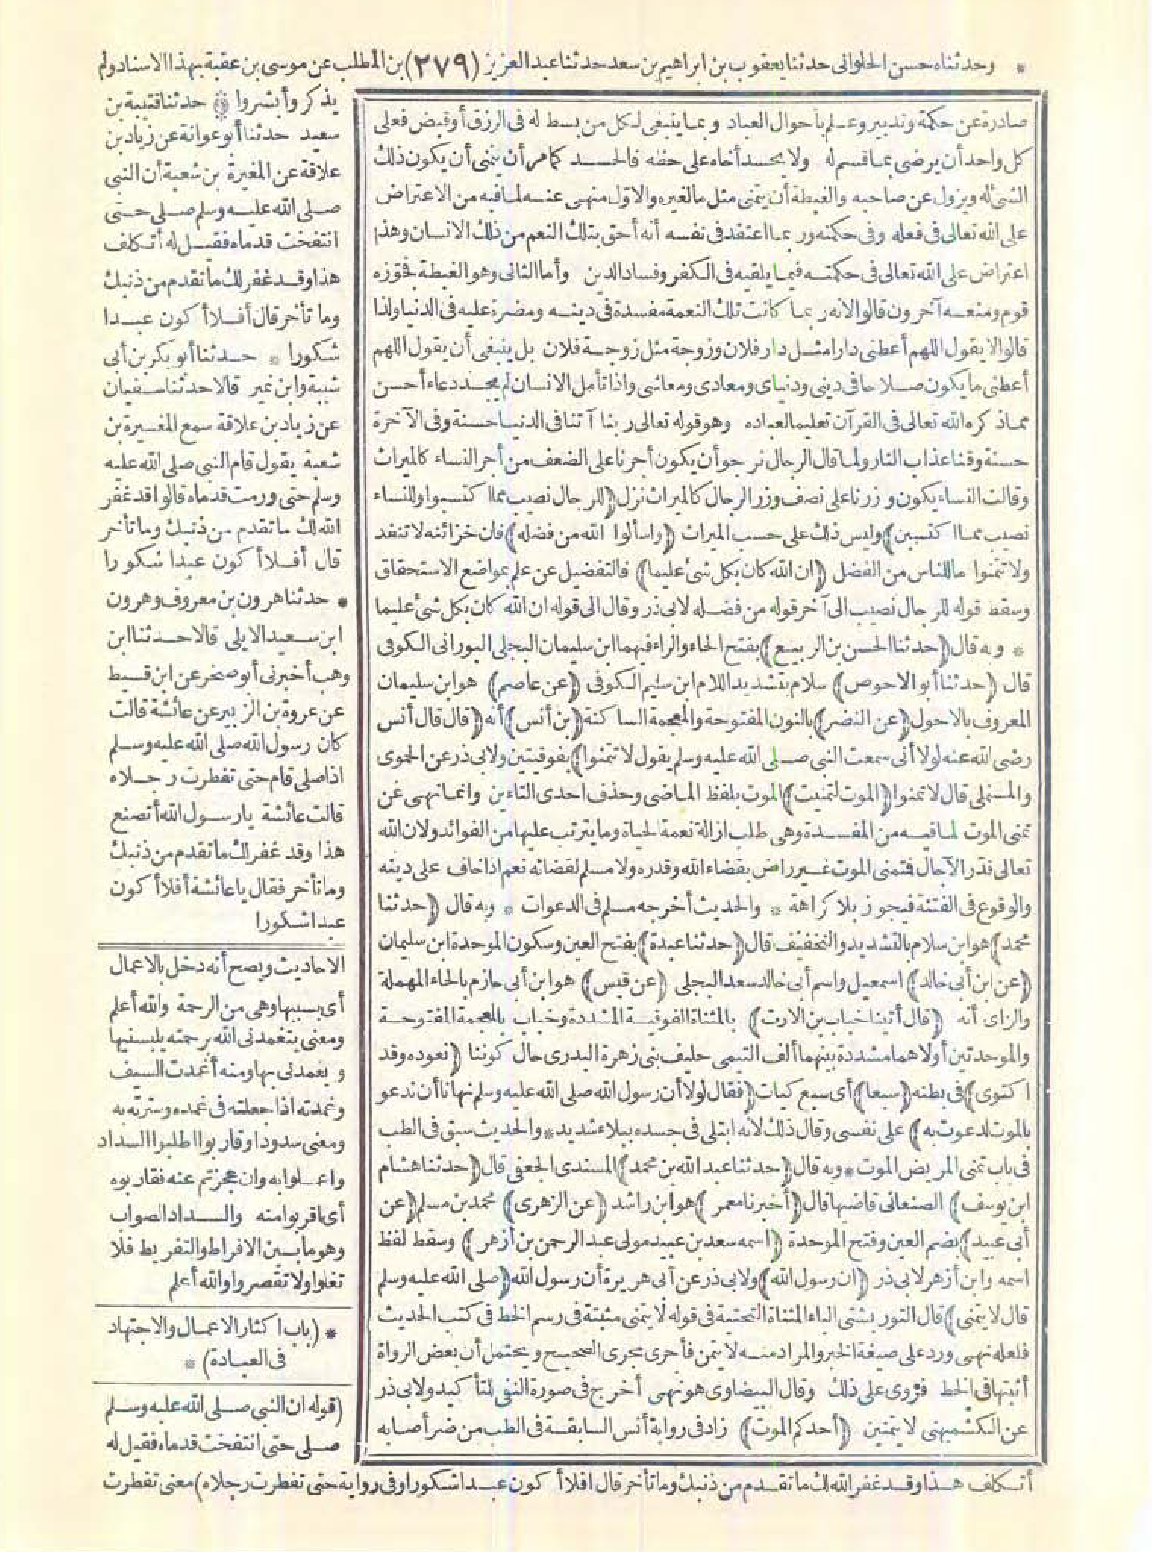 * وحدثناه حسن الحلواني حدثنا يعقوب بن ابراهيم بن سعد حدثنا عبد العزيز (٢٧٩) بن المطلب عن موسى بن عقبة بهذا الاسناد ولم
يذكر وأبشروا حدثنا قتيبة بن
سعيد حدثنا أبو عوانة عن زياد بن
علاقة عن المغيرة بن شعبة أن النبي
صلى الله عليه وسلم صلى حتى
انتفخت قدماه فقيل له أتكلف
هذا وقد غفر لك ما تقدم من ذنبك
وما تأخر قال أفلا أكون عبدا
شكورا * حدثنا أبو بكر بن أبى
شيبة وابن نمير قالا حدثنا سفيان
عن زياد بن علاقة سمع المغيرة بن
شعبة يقول قام النبي صلى الله عليه
وسلم حتى ورمت قدماه قالوا قد غفر
الله لك ما تقدم من ذنبك وما تأخر
قال أفلا أكون عبدا شكورا
* حدثنا هرون بن معروف وهرون
ابن سعيد الايلى قالا حدثنا ابن
وهب أخبرني أبو صخر عن ابن قسيط
عن عروة بن الزبير عن عائشة قالت
كان رسول الله صلى الله عليه وسلم
اذا صلى قام حتى تفطرت رجلاه
قالت عائشة يا رسول الله أتصنع
هذا وقد غفر لك ما تقدم من ذنبك
وما تأخر فقال يا عائشة أفلا أكون
عبدا شكورا
الاحاديث ويصح أنه دخل بالاعمال
أي بسببها وهى من الرحمة والله أعلم
ومعنى يتغمدنى الله برحمته يلبسنيها
ويغمدنى بها ومنه أغمدت السيف
وغمدته اذا جعلته فى غمده وسترته به
ومعنى سددوا وقاربوا اطلبوا السداد
واعملوا به وان عجزتم عنه فقاربوه
أى اقربوا منه والسداد الصواب
وهو ما بين الافراط والتفريط فلا
تغلوا ولا تقصروا والله أعلم
* (باب اكثار الاعمال والاجتهاد
فى العبادة) *
(قوله ان النبي صلى الله عليه وسلم
صلى حتى انتفخت قدماه فقيل له
صادرة عن حكمة وتدبير وعلم بأحوال العباد وبما ينبغى لكل من بسط له فى الرزق أو قبض فعلى
كل واحد أن يرضى بما قسم له ولا يحسد أخاه على حظه فالحسد كما مر أن يتمنى أن يكون ذلك
الشئ له ويزول عن صاحبه والغبطة أن يتمنى مثل ما لغيره والاول منهى عنه لما فيه من الاعتراض
على الله تعالى فى فعله وفى حكمته وربما اعتقد فى نفسه أنه أحق بتلك النعم من ذلك الانسان وهذا
اعتراض على الله تعالى فى حكمته فيما يلقيه فى الكفر وفساد الدين وأما الثانى وهو الغبطة فجوزه
قوم ومنعه آخرون قالوا لانه ربما كانت تلك النعمة مفسدة فى دينه ومضرة عليه فى الدنيا ولذا
قالوا لا يقول اللهم أعطنى دارا مثل دار فلان وزوجة مثل زوجة فلان بل ينبغى أن يقول اللهم
أعطنى ما يكون صلاحا فى دينى ودنياى ومعادى ومعاشى واذا تأمل الانسان لم يجد دعاء أحسن
مما ذكره الله تعالى فى القرآن تعليما لعباده وهو قوله تعالى ربنا آتنا فى الدنيا حسنة وفى الآخرة
حسنة وقنا عذاب النار ولما قال الرجال نرجو أن يكون أجرنا على الضعف من أجر النساء كالميراث
وقالت النساء يكون وزرنا على نصف وزر الرجال كالميراث نزل (للرجال نصيب مما اكتسبوا وللنساء
نصيب مما اكتسبن) وليس ذلك على حسب الميراث (واسألوا الله من فضله) فان خزائنه لا تنفد
ولا تتمنوا ما للناس من الفضل (ان الله كان بكل شئ عليما) فالتفضيل عن علم بمواضع الاستحقاق
وسقط قوله للرجال نصيب الى آخر قوله من فضله لابى ذر وقال الى قوله ان الله كان بكل شئ عليما
* وبه قال (حدثنا الحسن بن الربيع) بفتح الحاء والراء فيهما ابن سليمان البجلى البورانى الكوفى
قال (حدثنا أبو الاحوص) سلام بتشديد اللام ابن سليم الكوفى (عن عاصم) هو ابن سليمان
المعروف بالاحول (عن النضر) بالنون المفتوحة والمعجمة الساكنة (بن أنس) أنه (قال قال أنس
رضى الله عنه لولا أنى سمعت النبي صلى الله عليه وسلم يقول لا تتمنوا) بفوقيتين ولابى ذر عن الحموى
والمستملى قال لا تمنوا (الموت لتمنيت) الموت بلفظ الماضى وحذف احدى التاءين وانما نهى عن
تمنى الموت لما فيه من المفسدة وهى طلب ازالة نعمة الحياة وما يترتب عليها من الفوائد ولان الله
تعالى قدر الآجال فتمنى الموت غير راض بقضاء الله وقدره ولا مسلم لقضائه نعم اذا خاف على دينه
والوقوع فى الفتنة فيجوز بلا كراهة * والحديث أخرجه مسلم فى الدعوات * وبه قال (حدثنا
محمد) هو ابن سلام بالتشديد والتخفيف قال (حدثنا عبدة) بفتح العين وسكون الموحدة ابن سليمان
(عن ابن أبى خالد) اسمعيل واسم أبى خالد سعد البجلى (عن قيس) هو ابن أبى حازم بالحاء المهملة
والزاى أنه (قال أتينا خباب بن الارت) بالمثناة الفوقية المشددة وخباب بالمعجمة المفتوحة
والموحدتين أولاهما مشددة بينهما ألف التيمى حليف بنى زهرة البدرى حال كوننا (نعوده وقد
اكتوى) فى بطنه (سبعا) أى سبع كيات (فقال لولا أن رسول الله صلى الله عليه وسلم نهانا أن ندعو
بالموت لدعوت به) على نفسى وقال ذلك لانه ابتلى فى جسده ببلاء شديد * والحديث سبق فى الطب
فى باب تمنى المريض الموت * وبه قال (حدثنا عبد الله بن محمد) المسندى الجعفى قال (حدثنا هشام
ابن يوسف) الصنعانى قاضيها قال (أخبرنا معمر) هو ابن راشد (عن الزهرى) محمد بن مسلم (عن
أبى عبيد) بضم العين وفتح الموحدة (اسمه سعد بن عبيد مولى عبد الرحمن بن أزهر) وسقط لفظ
اسمه وابن أزهر لابى ذر (ان رسول الله) ولابى ذر عن أبى هريرة أن رسول الله (صلى الله عليه وسلم
قال لا يتمنى) قال التوربشتى الياء المثناة التحتية فى قوله لا يتمنى مثبتة فى رسم الخط فى كتب الحديث
فلعله نهى ورد على صيغة الخبر والمراد منه لا يتمن فأجرى مجرى الصحيح ويحتمل أن بعض الرواة
أثبتها فى الخط فروى على ذلك وقال البيضاوى هو نهى أخرج فى صورة النفى للتأكيد ولابى ذر
عن الكشميهنى لا يتمنين (أحدكم الموت) زاد فى رواية أنس السابقة فى الطب من ضر أصابه
أتكلف هذا وقد غفر الله لك ما تقدم من ذنبك وما تأخر قال افلا أكون عبدا شكورا وفى رواية حتى تفطرت رجلاه) معنى تفطرت